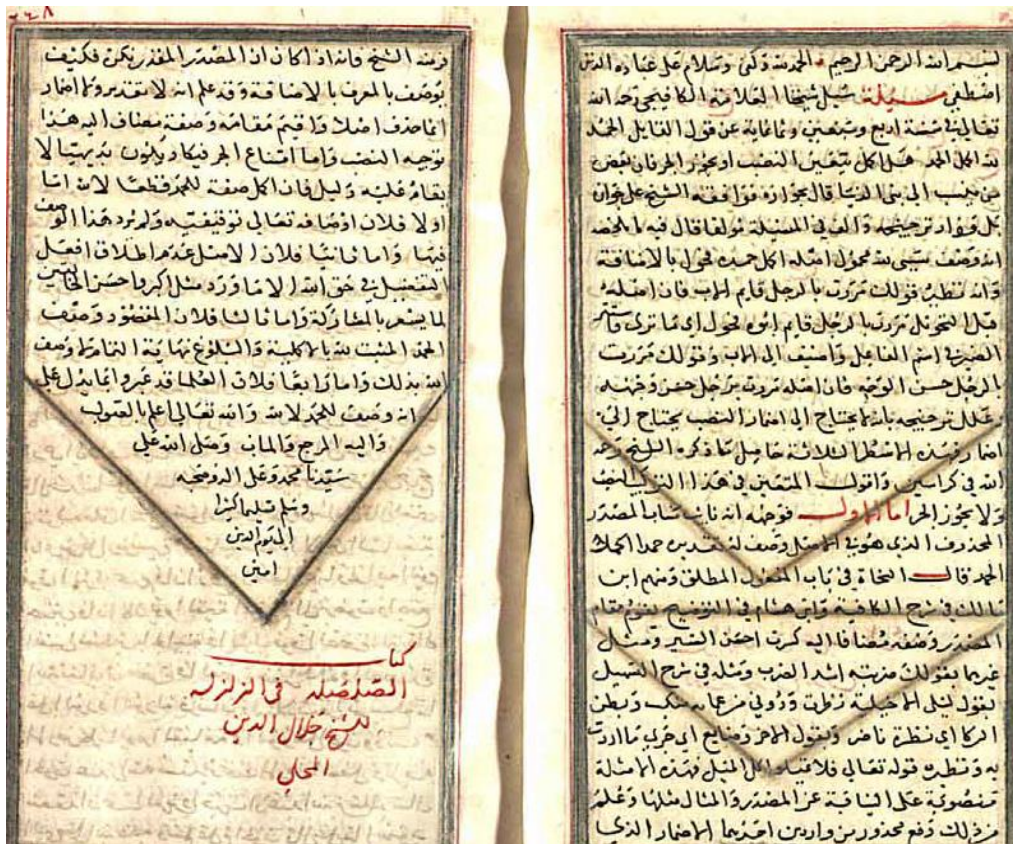 بسم الله الرحمن الرحيم الحمد لله وكفى وسلام على عباده الذين
اصطفى مسئلة سئل شيخنا العلامة الكافيجي رحمه الله
تعالى في سنة اربع وسبعين وثمانماية عن قول القايل الحمد
لله اكمل الحمد هل اكمل يتعين النصب او يجوز الجر فان بعض
قال بجوازه فوافقه الشيخ على جواز
كل والف في المسئلة مولفا قال فيه ما ملخصه
انه وصف سببي لله محول اصله اكمل حمده فحول بالاضافة
وانه نظير قولك مررت بالرجل قايم الاب فان اصله
قبل التحويل مررت بالرجل قايم ابوه فحول اي ما ترى فاستتر
الضمير في اسم الفاعل واضيف الى الاب وقولك مررت
بالرجل حسن الوجه فان اصله مررت برجل حسن وجهه
وعلل ترجيحه بانه لا يحتاج الى اضمار النصب يحتاج الى
اضمار فهذه الاسطر الثلاثة حاصل ما ذكره الشيخ رحمه
الله في كراسين واقول المتعين في هذا التركيب النصب
ولا يجوز الجر اما الاول فوجهه انه نايب مناب المصدر
المحذوف الذي هو في الاصل وصف له تقديره حمدا اكمل
الحمد قال النحاة في باب المفعول المطلق ومنهم ابن
مالك في شرح الكافية وابن هشام في التوضيح يقوم مقام
المصدر وصفه مضافا اليه كسرت احسن السير ومثل
غيرهما بقولك ضربته اشد الضرب ومثله في شرح التسهيل
بقول ليلى الاخيلية
نظرة ناظر وبقول الاخر وضايع اي جري ما اردت
به ونظيره قوله تعالى فلا تميلوا كل الميل فهذه الامثلة
منصوبة على النيابة عن المصدر والمثال مثلها وعلم
من ذلك دفع محذورين واردين احدهما الاضمار الذي
فر منه الشيخ فانه اذا كان ان المصدر المقدر نكرة فكيف
يوصف بالمعرف بالاضافة وقد علم انه لا تقدير ولا اضمار
انما حذف اصلا واقيم مقامه وصفه مضاف اليه هذا
توجيه النصب واما امتناع الجر فيكاد يكون بديهيا لا
يقام عليه دليل فان اكمل صفة للحمد قطعا لا لله اما
اولا فلان اوصافه تعالى توقيفية ولم يرد هذا الوصف
فيها واما ثانيا فلان الاصل عدم اطلاق افعل
التفضيل في حق الله الا ما ورد مثل اكبر واحسن الخالقين
لما يشعر بالمشاركة واما ثالثا فلان المقصود وصف
الحمد المثبت لله بالاكملية والبلوغ نهاية التمام لا وصف
الله بذلك واما رابعا فلان العلما قد عبروا بما يدل على
انه وصف للحمد لا لله والله تعالى اعلم بالغيوب
واليه المرجع والماب وصلى الله على
سيدنا محمد وعلى اله وصحبه
وسلم تسليما كثيرا
الى يوم الدين
امين
كتاب
الصلصله في الزلزله
للشيخ جلال الدين
المحلي